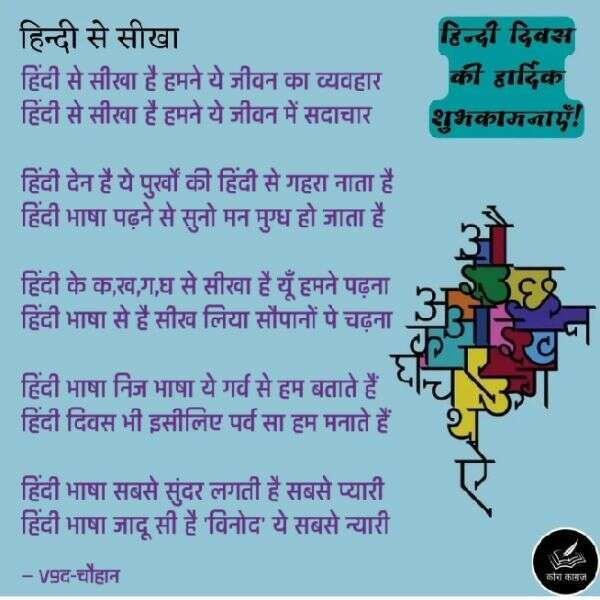 हिन्दी से सीखा
हिन्दी दिवस
की हार्दिक
शुभकामनाएँ!
हिंदी से सीखा है हमने ये जीवन का व्यवहार
हिंदी से सीखा है हमने ये जीवन में सदाचार
हिंदी देन है ये पुर्खों की हिंदी से गहरा नाता है
हिंदी भाषा पढ़ने से सुनो मन मुग्ध हो जाता है
हिंदी के क,ख,ग,घ से सीखा है यूँ हमने पढ़ना
हिंदी भाषा से है सीख लिया सौपानों पे चढ़ना
हिंदी भाषा निज भाषा ये गर्व से हम बताते हैं
हिंदी दिवस भी इसीलिए पर्व सा हम मनाते हैं
हिंदी भाषा सबसे सुंदर लगती है सबसे प्यारी
हिंदी भाषा जादू सी है 'विनोद' ये सबसे न्यारी
– v9द-चौहान
कोरा काग़ज़